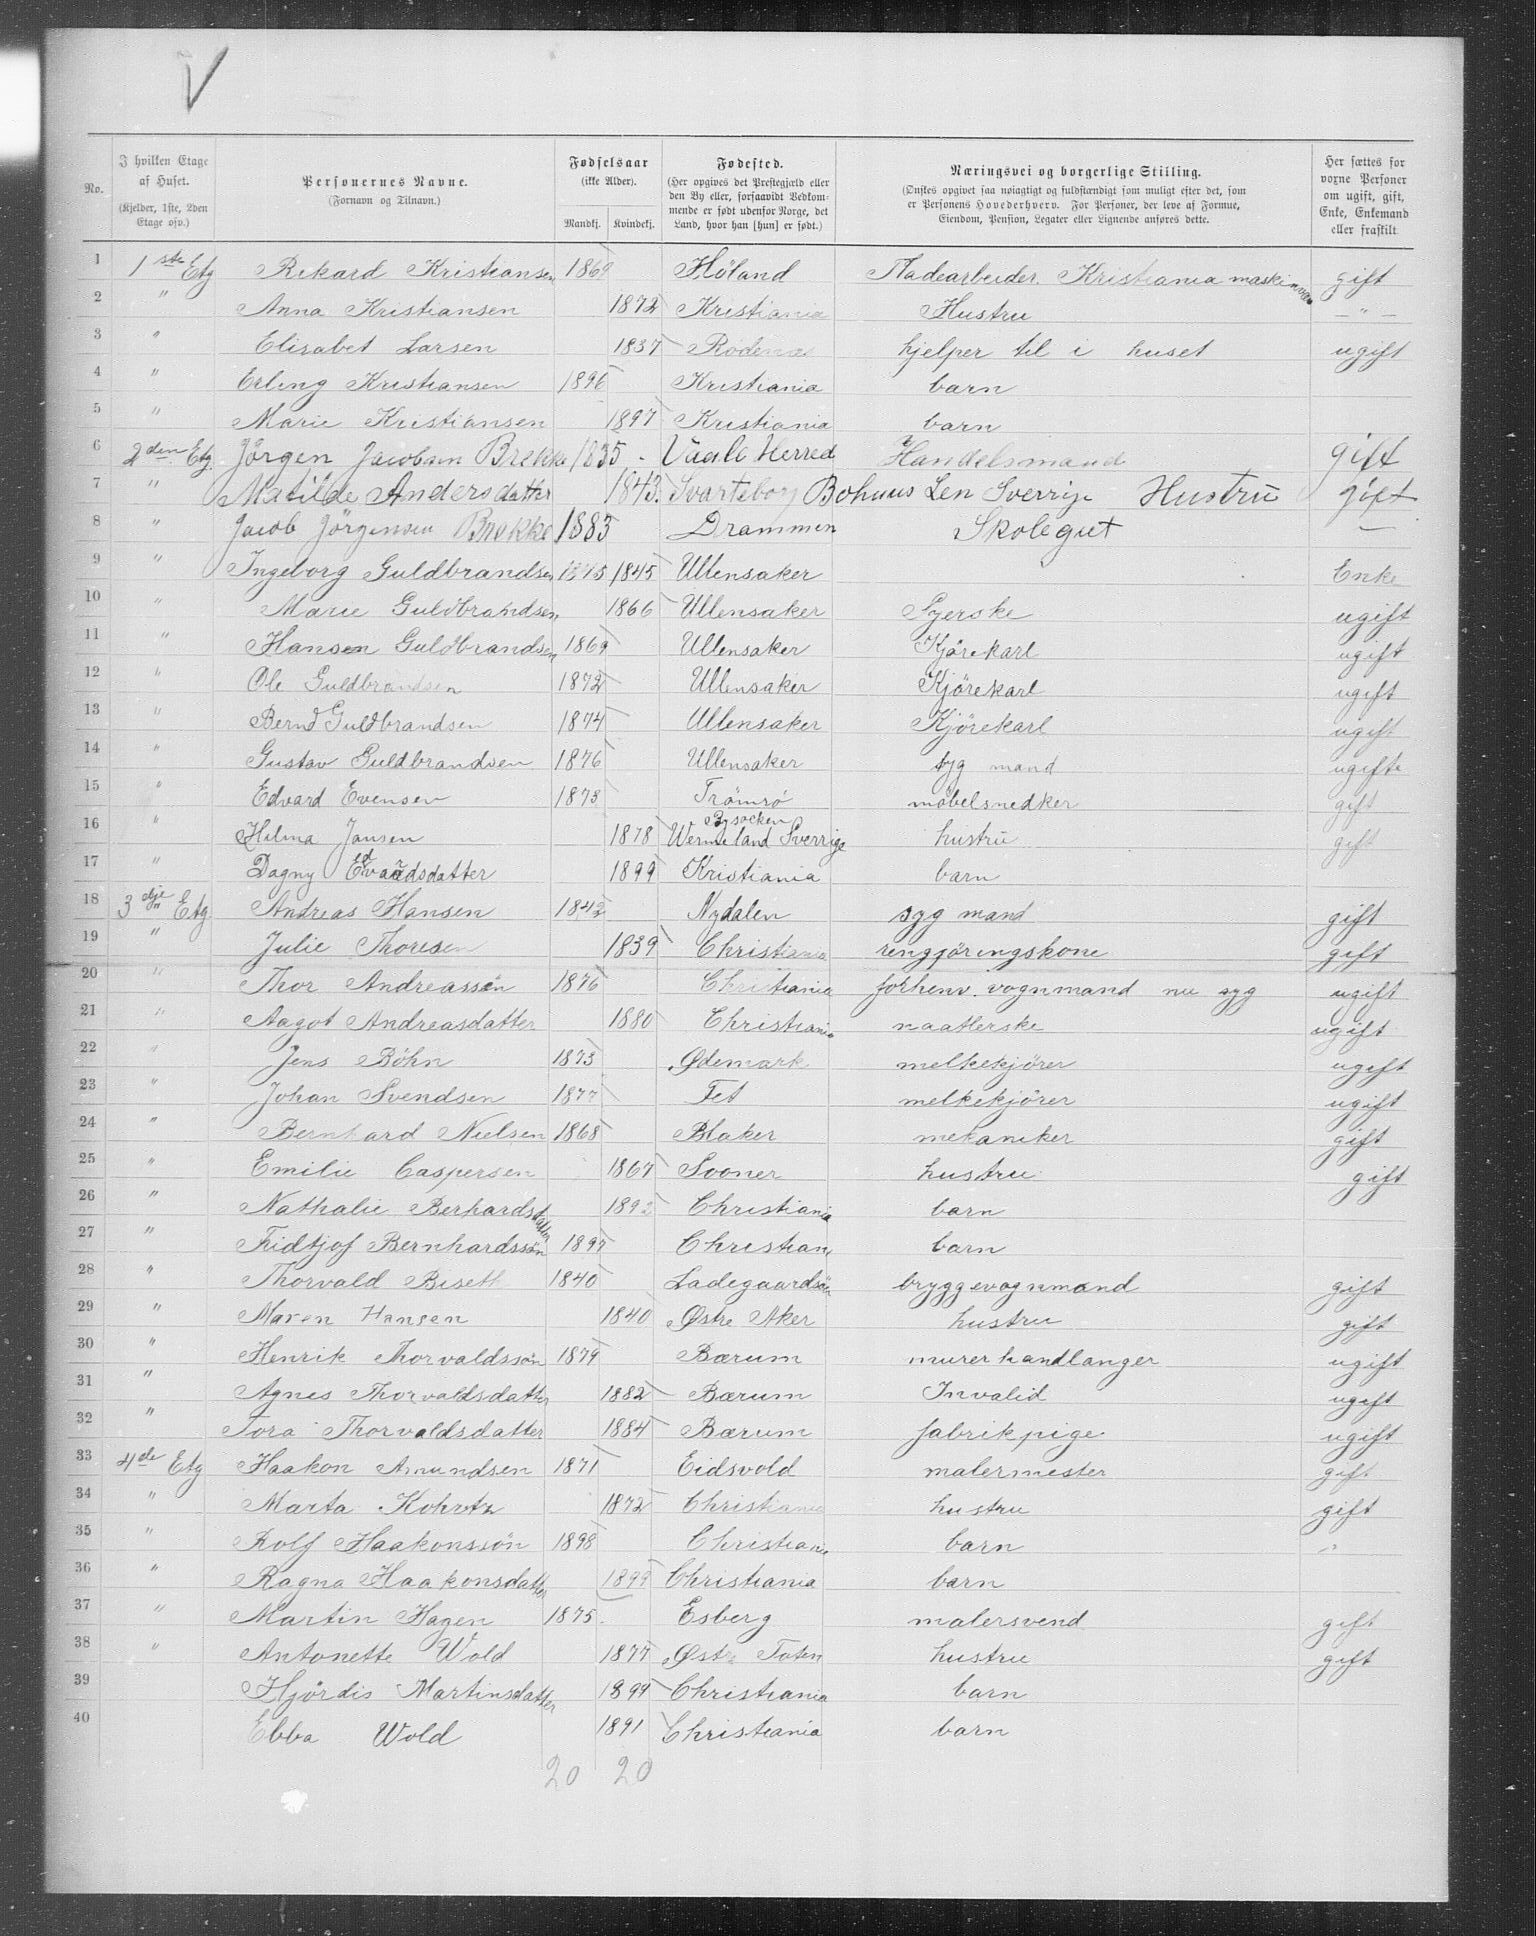 V
No.
I hvilken Etage af Huset. (Kjelder, 1ste, 2den Etage osv.)
Personernes Navne. (Fornavn og Tilnavn.)
Fødselsaar (ikke Alder). Mandkj. Kvindekj.
Fødested. (Her opgives det Prestegjæld eller den By eller, forsaavidt Vedkommende er født udenfor Norge, det Land, hvor han [hun] er født.)
Næringsvei og borgerlige Stilling. (Ønskes opgivet saa nøiagtigt og fuldstændigt som muligt efter det, som er Personens Hovederhverv. For Personer, der leve af Formue, Eiendom, Pension, Legater eller Lignende anføres dette.)
Her sættes for voxne Personer om ugift, gift, Enke, Enkemand eller fraskilt.
1 1ste Etg Rikard Kristiansen 1869 Høland Pladearbeider. Kristiania gift
2 " Anna Kristiansen 1872 Kristiania Hustru — " —
3 " Elisabet Larsen 1837 Rødenæs hjelper til i huset ugift
4 " Erling Kristiansen 1896 Kristiania barn
5 " Marie Kristiansen 1897 Kristiania barn
6 2den Etg. Jørgen Jacobsen Brekke 1835 Vaale Herred Handelsmand gift
7 " Matilde Andersdatter 1843 Svarteborg Bohuus Len Sverrige Hustrü gift
8 " Jacob Jörgensen Brekke 1883 Drammen Skolegut —
9 " Ingeborg Guldbrandsen 1845 Ullensaker Enke
10 " Marie Guldbrandsen 1866 Ullensaker Syerske ugift
11 " Hansen Guldbrandsen 1869 Ullensaker Kjörekarl ugift
12 " Ole Guldbrandsen 1872 Ullensaker Kjörekarl ugift
13 " Bernd Guldbrandsen 1874 Ullensaker Kjörekarl ugift
14 " Gustav Guldbrandsen 1876 Ullensaker syg mand ugifte
15 " Edvard Evensen 1873 Trömsö möbelsnedker gift
16 " Hilma Jansen 1878 Wermeland Sverrige hustrü gift
17 " Dagny Edvardsdatter 1899 Kristiania barn
18 3dje Etg. Andreas Hansen 1842 Nydalen syg mand gift
19 " Julie Thoresen 1839 Christiania rengjøringskone gift
20 " Thor Andreassøn 1876 Christiania forhenv. vognmand nu syg ugift
21 " Aagot Andreasdatter 1880 Christiania naatlerske ugift
22 " Jens Bøhn 1873 Ødemark melkekjører ugift
23 " Johan Svendsen 1877 Fet melkekjører ugift
24 " Bernhard Nielsen 1868 Blaker mekaniker gift
25 " Emilie Caspersen 1867 Sooner hustru gift
26 " Nathalie Berhardsdatter 1892 Christiania barn
27 " Fridtjof Bernhardssøn 1897 Christian barn
28 " Thorvald Biseth 1840 Ladegaardsöen bryggevognmand gift
29 " Maren Hansen 1840 Østre Aker hustru gift
30 " Henrik Thorvaldssön 1879 Bærum murerhandlanger ugift
31 " Agnes Thorvaldsdatter 1882 Bærum Invalid ugift
32 " Tora Thorvaldsdatter 1884 Bærum fabrikpige ugift
33 4de Etg Haakon Amundsen 1871 Eidsvold malermester gift
34 " Marta Kohrtz 1872 Christiania hustru gift
35 " Rolf Haakonssön 1898 Christiania barn "
36 " Ragna Haakonsdatter 1899 Christiania barn
37 " Martin Hagen 1875 Esberg malersvend gift
38 " Antonette Wold 1877 Østre Toten hustru gift
39 Hjördis Martinsdatter 1899 Christiania barn
40 Ebba Wold 1891 Christiania barn
20 20